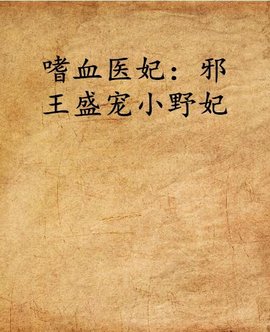 嗜血医妃：邪
王盛宠小野妃